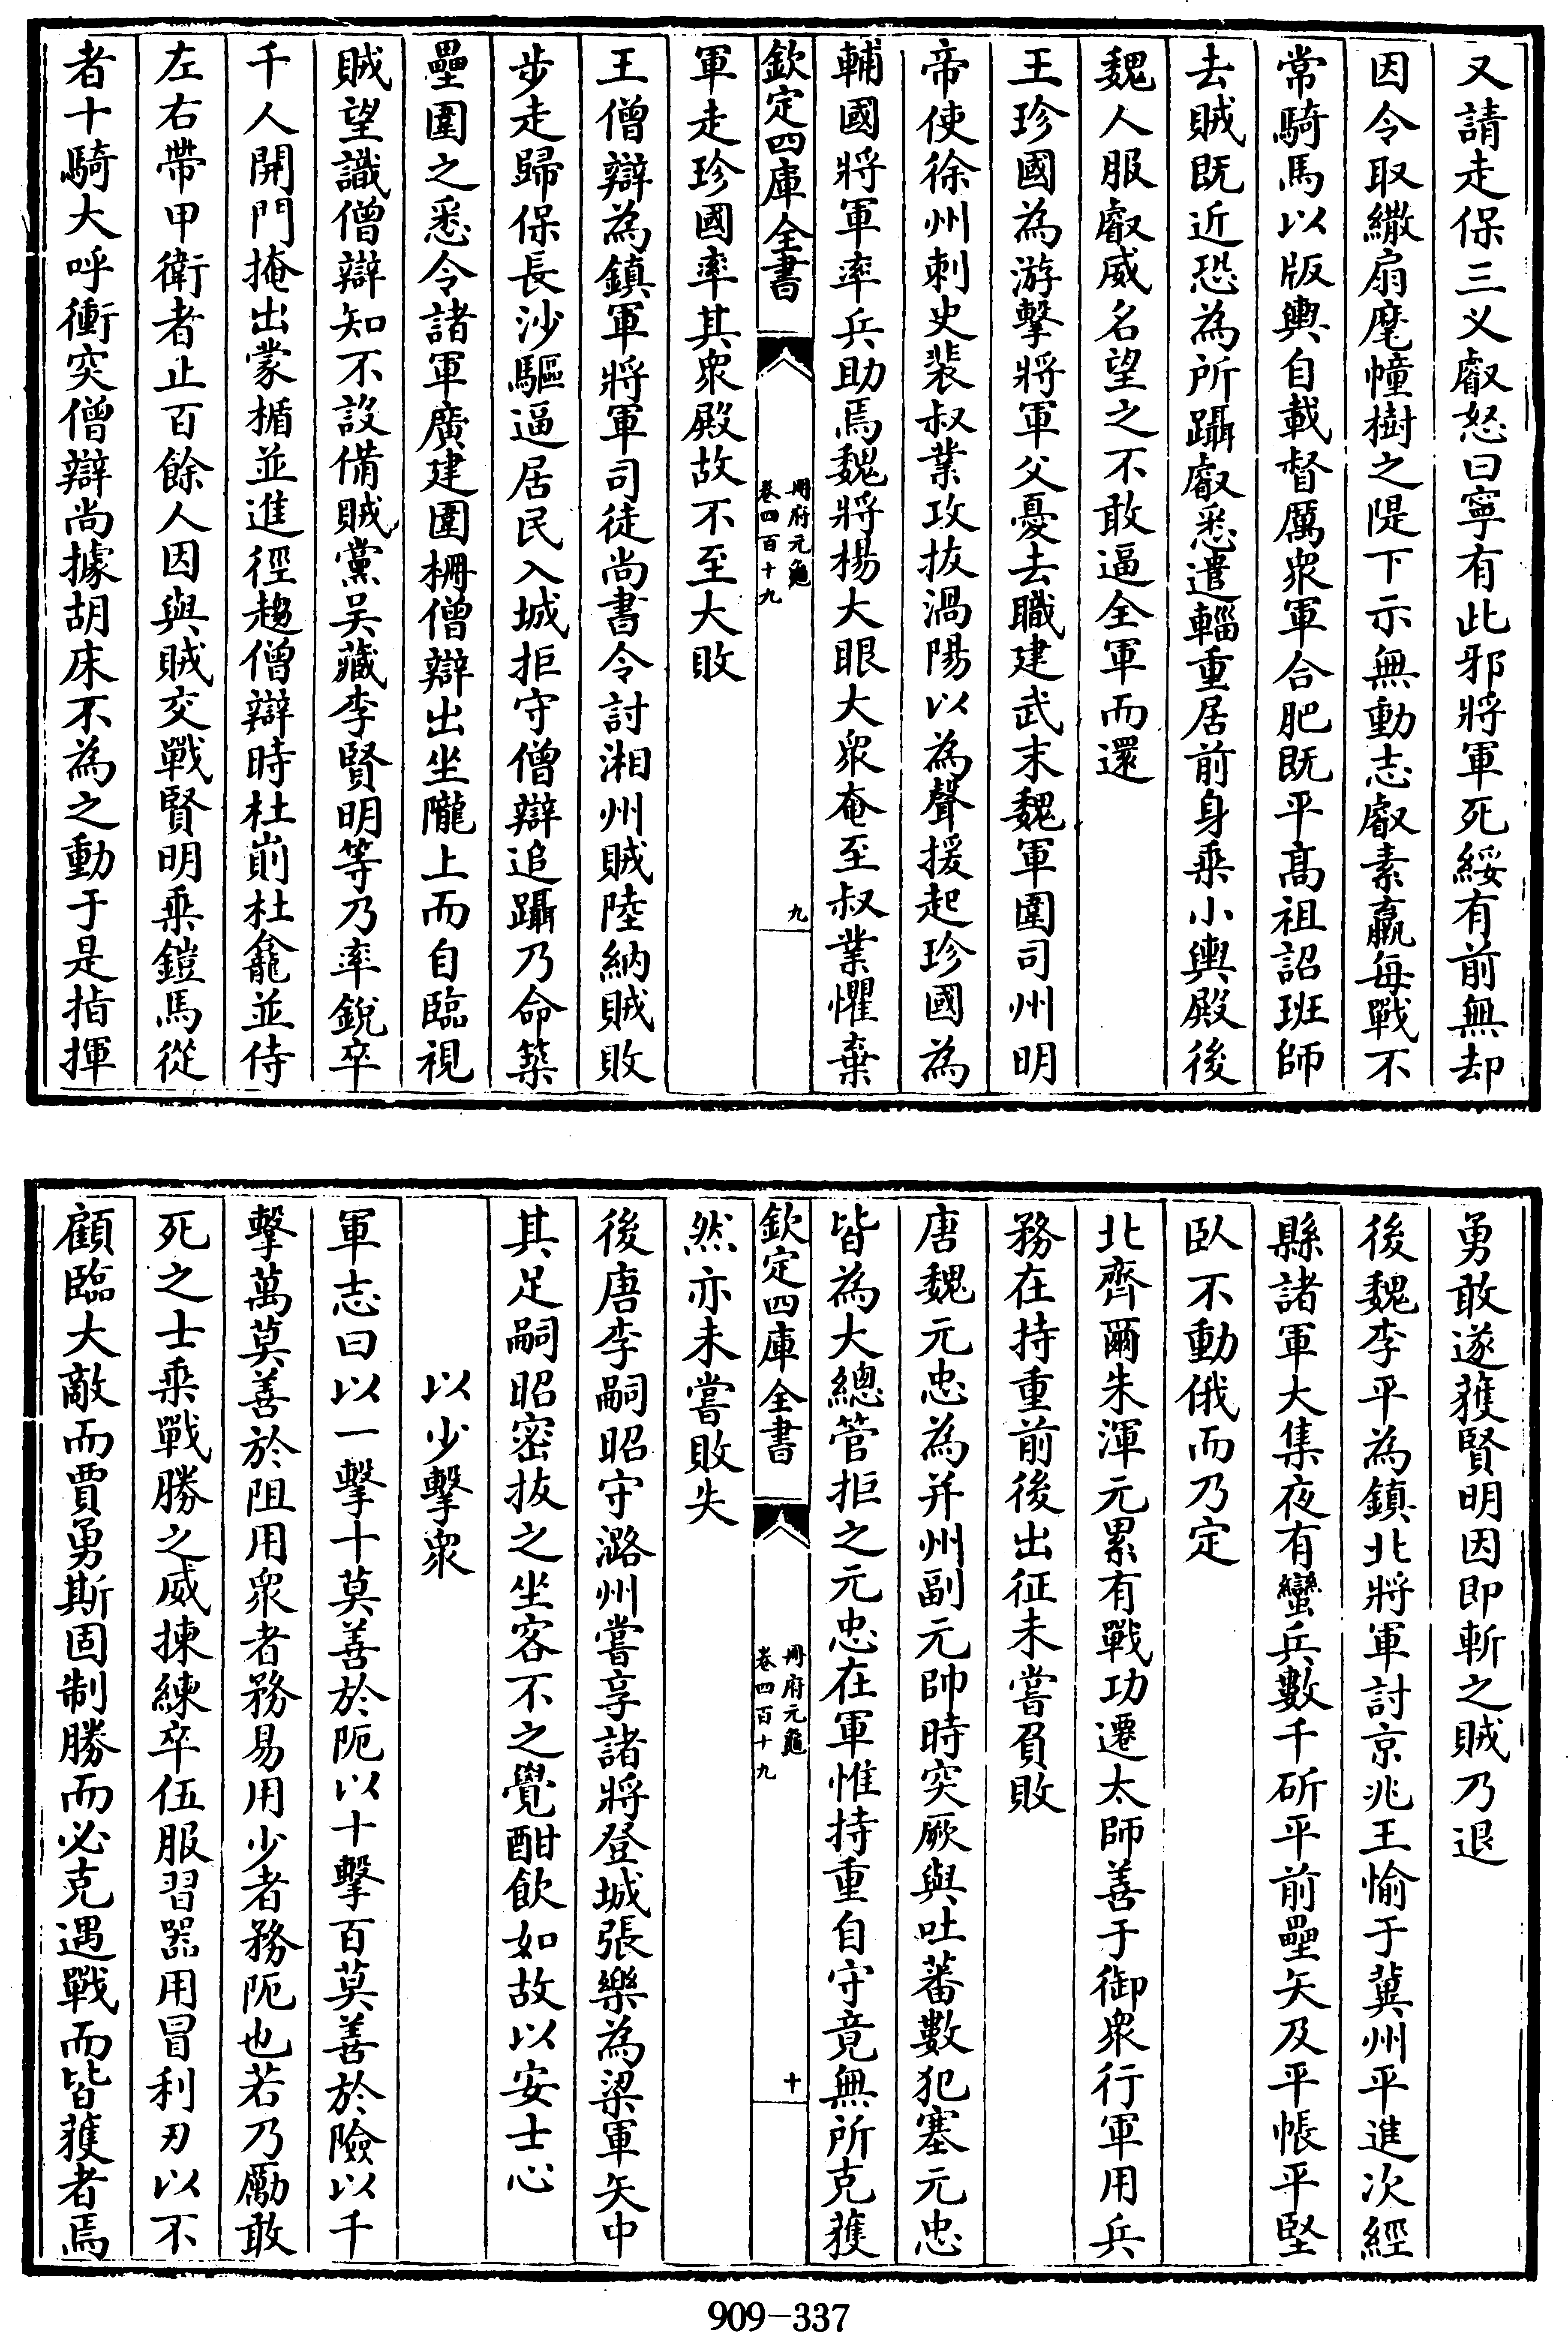 又請走保三义叡怒曰寧有此邪將軍死綏有前無却
因令取繖扇麾幢樹之隄下示無動志叡素羸每戰不
常騎馬以版輿自載督厲衆軍合肥既平髙祖詔班師
去賊既近恐為所躡叡悉遣輜重居前身乗小輿殿後
魏人服叡威名望之不敢逼全軍而還
王珍國為游擊將軍父憂去職建武末魏軍圍司州明
帝使徐州刺史裴叔業攻拔渦陽以為聲援起珍國為
輔國將軍率兵助焉魏將楊大眼大衆奄至叔業懼棄
欽定四庫全書
冊府元龜
卷四百十九
九
軍走珍國率其衆殿故不至大敗
王僧辯為鎮軍將軍司徒尚書令討湘州賊陸納賊敗
步走歸保長沙驅逼居民入城拒守僧辯追躡乃命築
壘圍之悉令諸軍廣建圍柵僧辯出坐隴上而自臨視
賊望識僧辯知不設備賊黨吳藏李賢明等乃率銳卒
千人開門掩出蒙楯並進徑趨僧辯時杜崱杜龕並侍
左右帶甲衛者止百餘人因與賊交戰賢明乗鎧馬從
者十騎大呼衝突僧辯尚據胡床不為之動于是指揮
勇敢遂獲賢明因即斬之賊乃退
後魏李平為鎮北將軍討京兆王愉于冀州平進次經
縣諸軍大集夜有蠻兵數千斫平前壘矢及平帳平堅
臥不動俄而乃定
北齊爾朱渾元累有戰功遷太師善于御衆行軍用兵
務在持重前後出征未嘗負敗
唐魏元忠為并州副元帥時突厥與吐蕃數犯塞元忠
皆為大總管拒之元忠在軍惟持重自守竟無所克獲
欽定四庫全書
冊府元龜
卷四百十九
十
然亦未嘗敗失
後唐李嗣昭守潞州嘗享諸將登城張樂為梁軍矢中
其足嗣昭密拔之坐客不之覺酣飲如故以安士心
以少擊衆
軍志曰以一擊十莫善於阨以十擊百莫善於險以千
擊萬莫善於阻用衆者務易用少者務阨也若乃勵敢
死之士乗戰勝之威揀練卒伍服習器用冒利刃以不
顧臨大敵而賈勇斯固制勝而必克遇戰而皆獲者焉
909-337